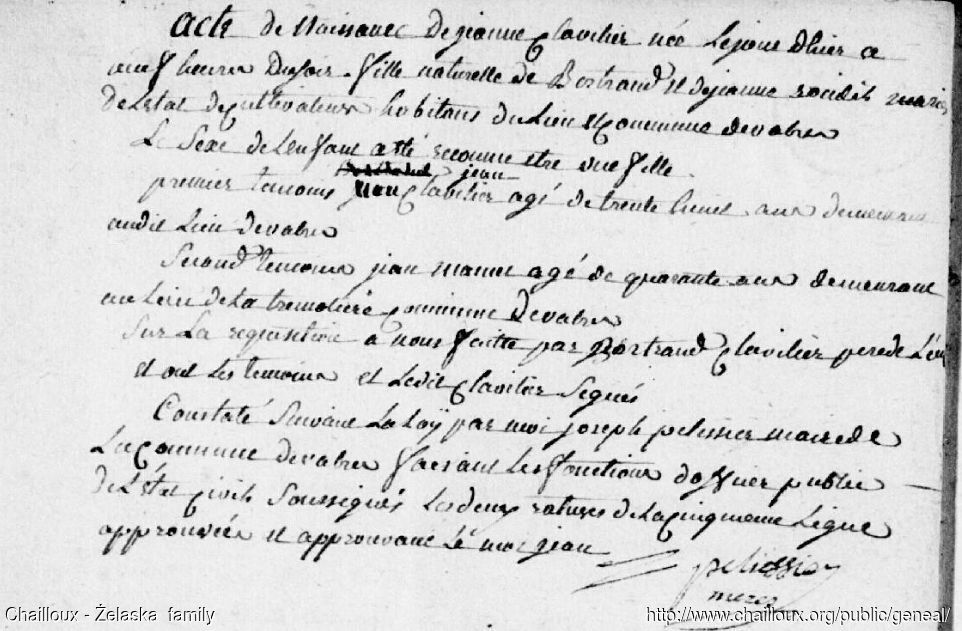 acte de Naissance de jeanne Clavilier née le jour dhier a
neuf heures Dusoir. fille naturelle de Bertrand et dejeanne mariés
de Létat de cultivateurs habitans du Lieu et Commune devabres
Le Sexe de Lenfant a eté reconnu etre une fille.
premier temoins jean Clavilier agé de trente huit ans demeurant
audit Lieu devabres
Second temoins jean agé de quarante ans demeurant
au Lieu de La tremoliere Commune devabres
Sur La requisition a nous faitte par Bertrand Clavilier pere de L'en
et ont Les temoins et Ledit Clavilier Signés
Constaté Suivant La Loÿ par moi joseph pelissier maire de
La Commune devabres faisant Les fonctions dofficier public
de L'état Civil Soussignés Les deux ratures de La Cinquieme Ligne
approuvées et approuvant Lé mot jean
pelissier
Chailloux - Żelaska family
http://www.chailloux.org/public/geneal/